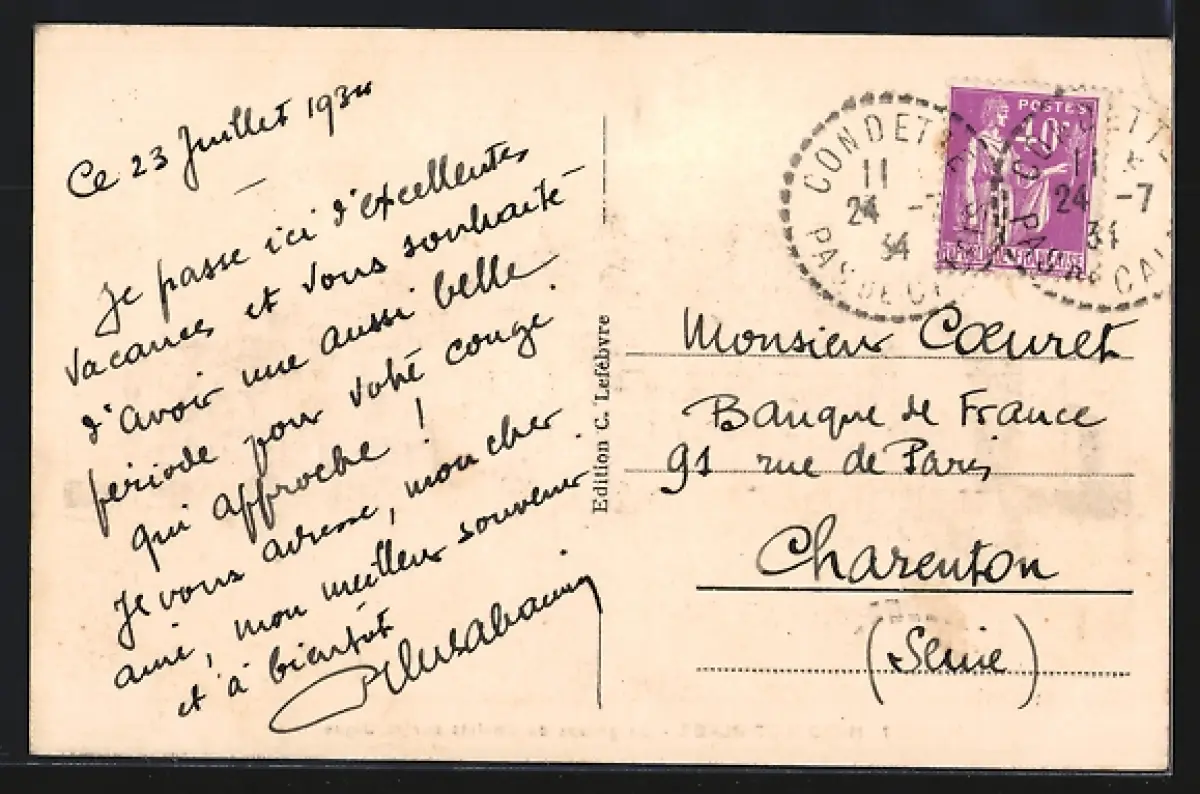 Ce 23 Juillet 1934
Je passe ici d'excellentes
vacances et vous souhaite
d'avoir une aussi belle
période pour votre congé
qui approche !
Je vous adresse, mon cher
ami, mon meilleur souvenir.
et à bientôt
Edition C. Lefèbvre
POSTES
40c
CONDETTE
11
24 -7
34
PAS DE CALAIS
CONDETTE
11
24 -7
34
PAS DE CALAIS
Monsieur Cœuret
Banque de France
91 rue de Paris
Charenton
(Seine)